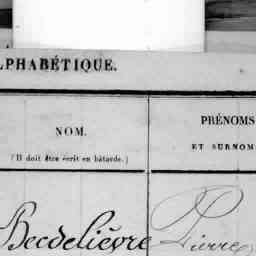 LPHABÉTIQUE.
NOM.
(Il doit être écrit en bâtarde.)
PRÉNOMS
ET SURNOM
Becdelièvre Pierre